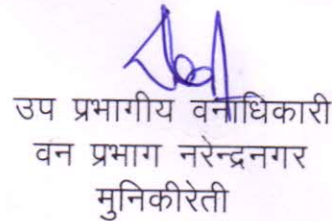 उप प्रभागीय वनाधिकारी
वन प्रभाग नरेन्द्रनगर
मुनिकीरेती